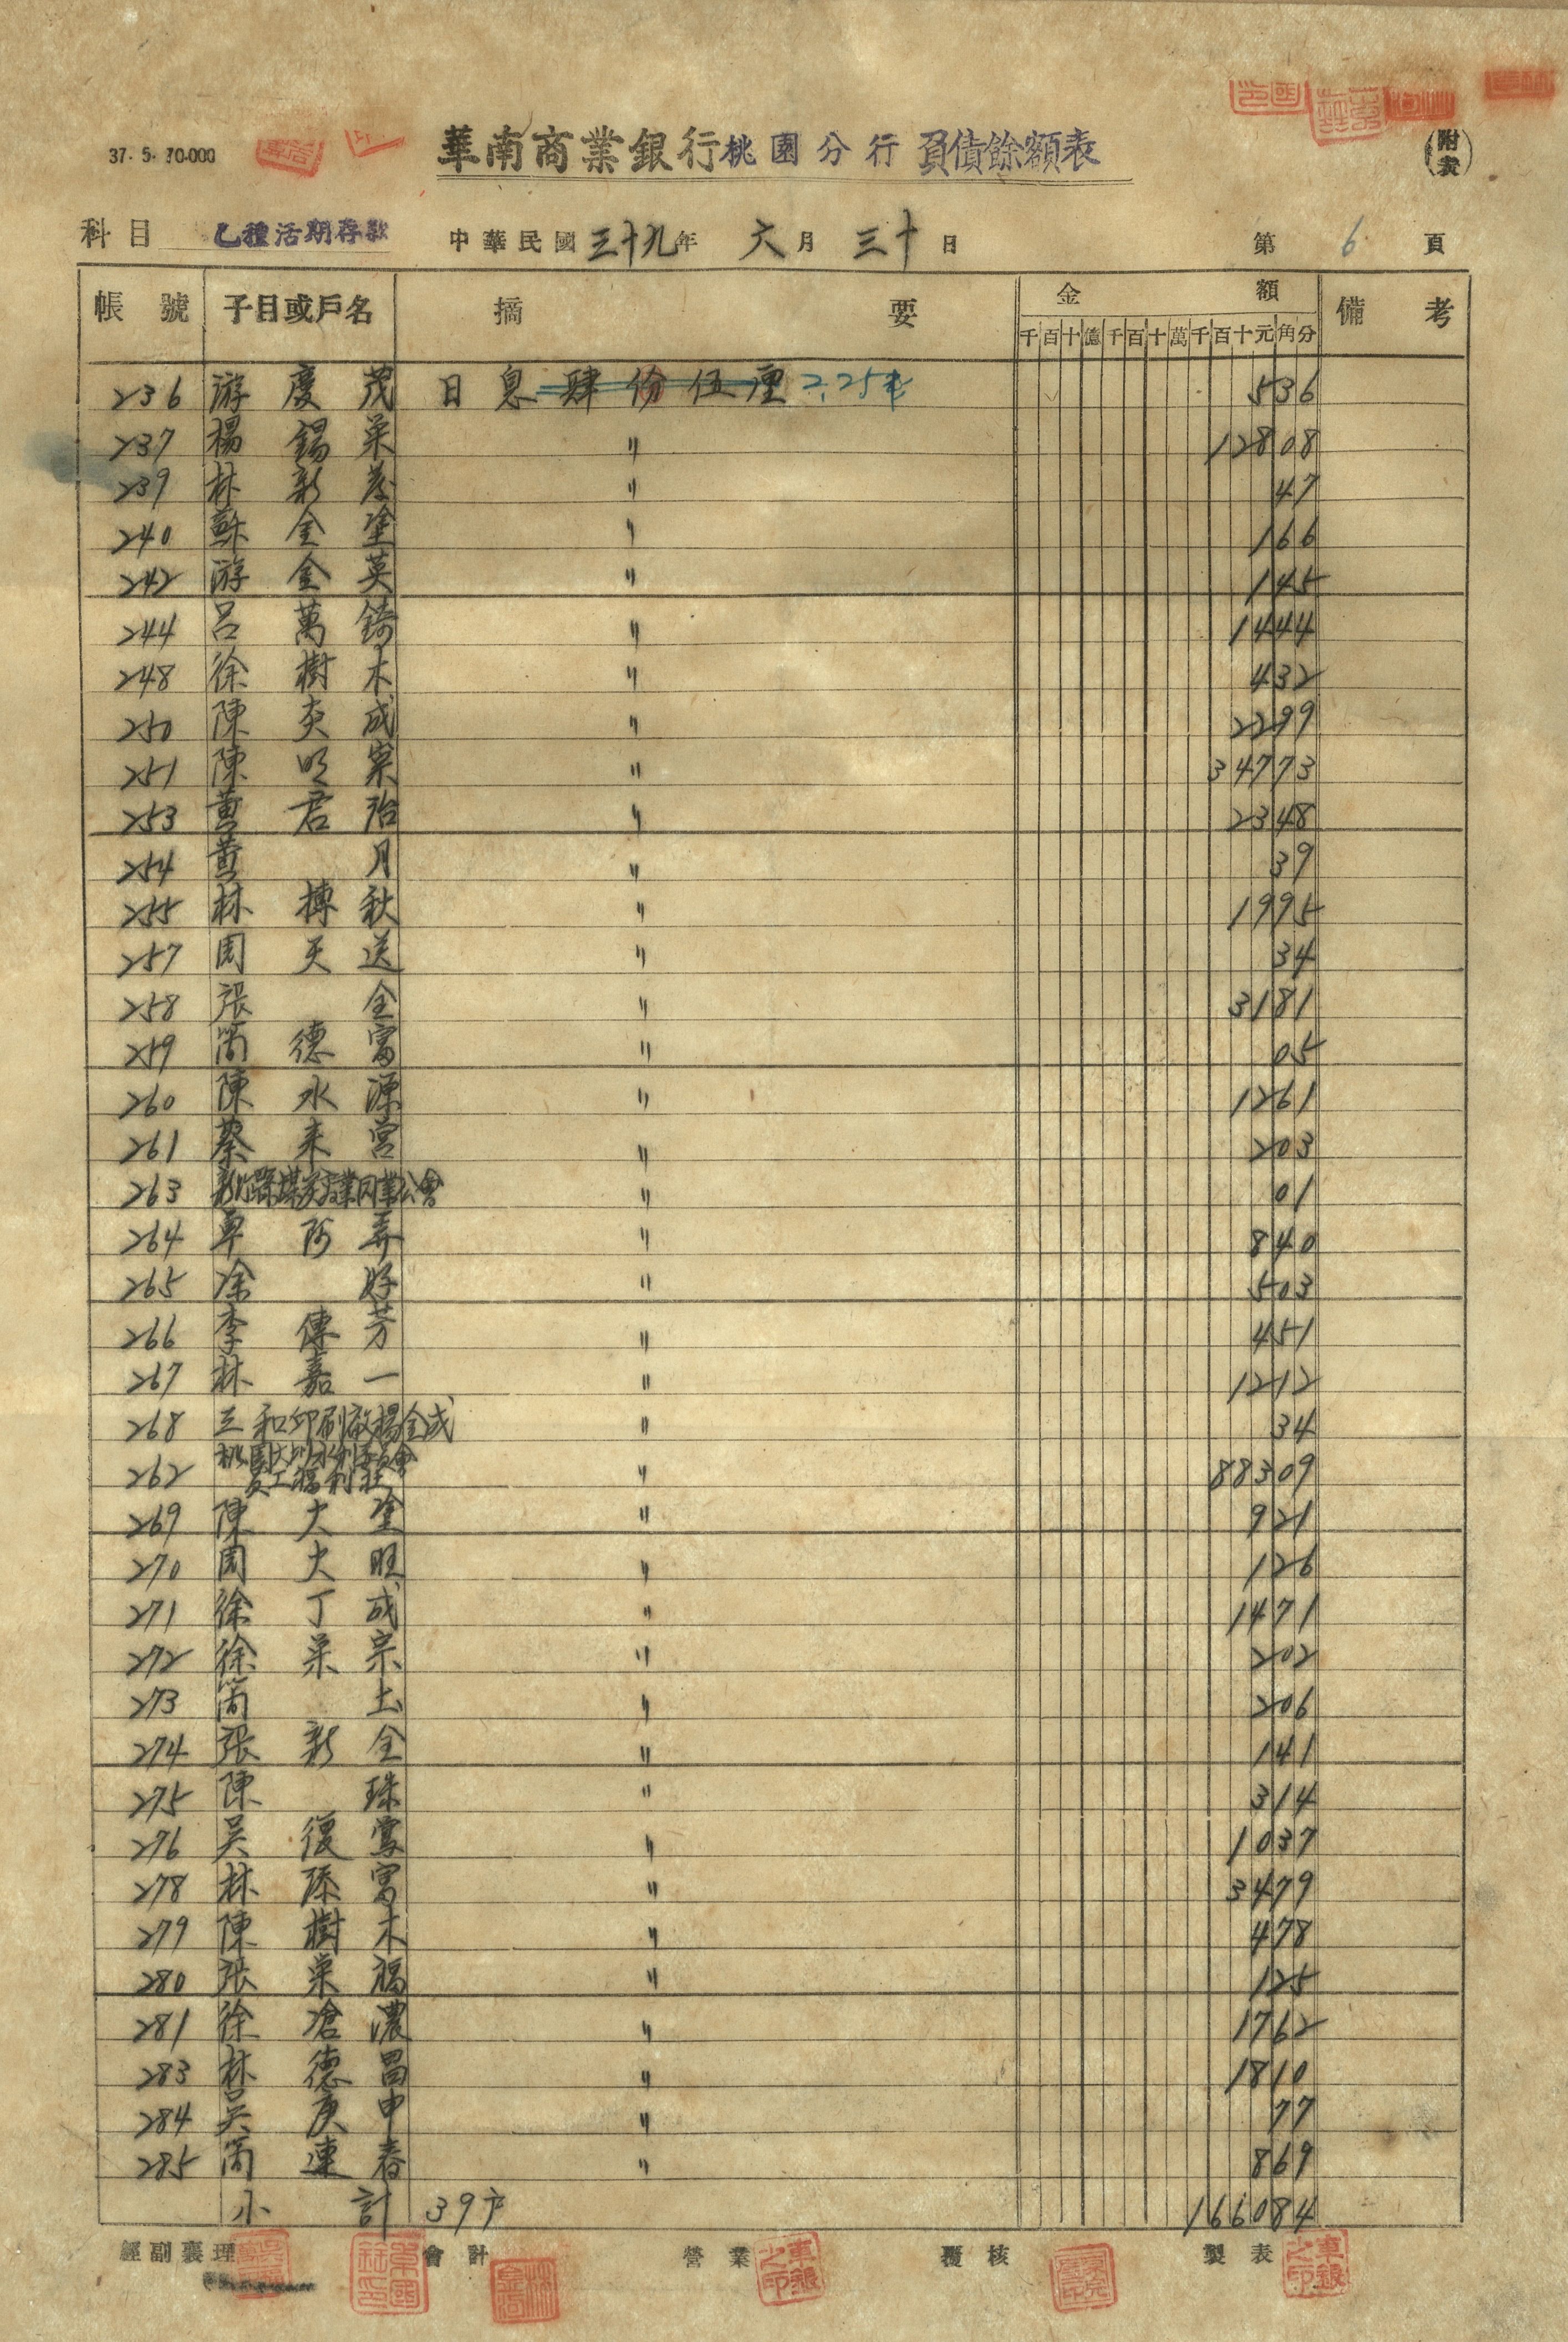 37.5.70.000
華南商業銀行桃園分行負債餘額表
(附表)
科目 乙種活期存款 中華民國三十九年六月三十日 第6頁
帳號 子目或戶名 摘要 金額 備考
千百十億千百十萬千百十元角分
236 游慶茂 日息肆份伍厘 2.25 536
237 楊錫 〃 12808
239 林新 〃 47
240 蘇金塗 〃 166
242 游金英 〃 145
244 呂萬錡 〃 1444
248 徐樹木 〃 432
250 陳 成 〃 2299
251 陳 〃 34773
253 黃君治 〃 2348
254 黃月 〃 39
255 林摶秋 〃 1995
257 周天送 〃 34
258 張全 〃 3181
259 簡德富 〃 05
260 陳水源 〃 1261
261 蔡來 〃 203
263 業同業公會 〃 01
264 卓阿弄 〃 840
265 涂好 〃 503
266 李傳芳 〃 451
267 林嘉一 〃 1212
268 三和印刷廠楊金成 〃 34
262 桃園大圳水利委員會
員工福利社 〃 88309
269 陳大塗 〃 921
270 周火旺 〃 126
271 徐丁成 〃 1471
272 徐 宗 〃 202
273 簡土 〃 206
274 張新全 〃 141
275 陳珠 〃 314
276 吳復 〃 1037
278 林添富 〃 3479
279 陳樹木 〃 478
280 張 福 〃 125
281 徐滄濃 〃 1762
283 林德昌 〃 1810
284 吳庚申 〃 77
285 簡連春 〃 869
小計 39戶 166084
經副襄理 會計 營業 覆核 製表